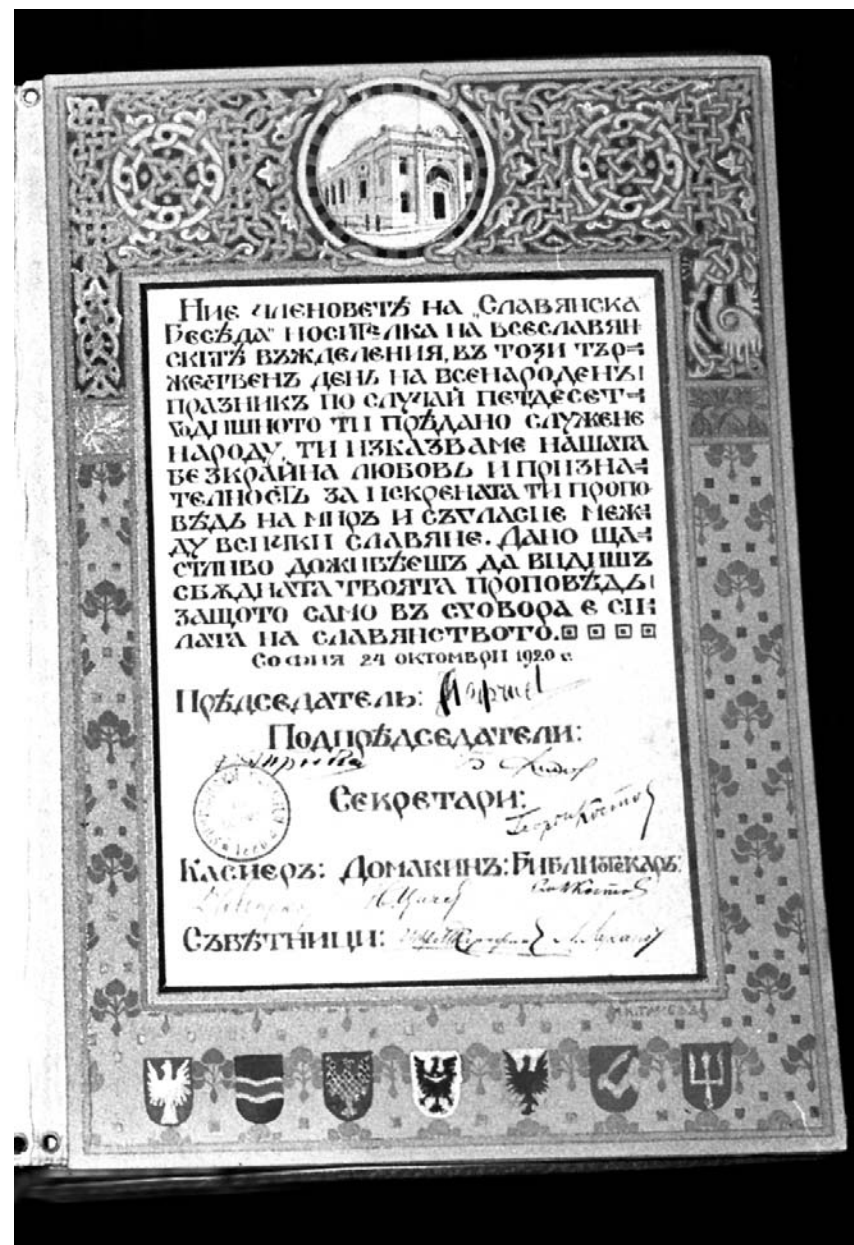 Ние членоветѣ на „Славянска
Бесѣда" носителка на всеславян-
скитѣ въжделения, въ този тър-
жественъ день на всенароденъ
празникъ по случай петдесет-
годишното ти прѣдано служене
народу, ти изказваме нашата
безкрайна любовь и призна-
телность за искрената ти пропо-
вѣдь на миръ и съгласие меж-
ду всички славяне. Дано ща-
стливо доживѣешъ да видишъ
сбѫдната твоята проповѣдь
защото само въ сговора е си-
лата на славянството.
София 24 октомврий 1920 г.
Прѣдседатель:
Подпрѣдседатели:
Секретари:
Георги Костов
Касиеръ: Домакинъ: Библиотекарь:
Съвѣтници: